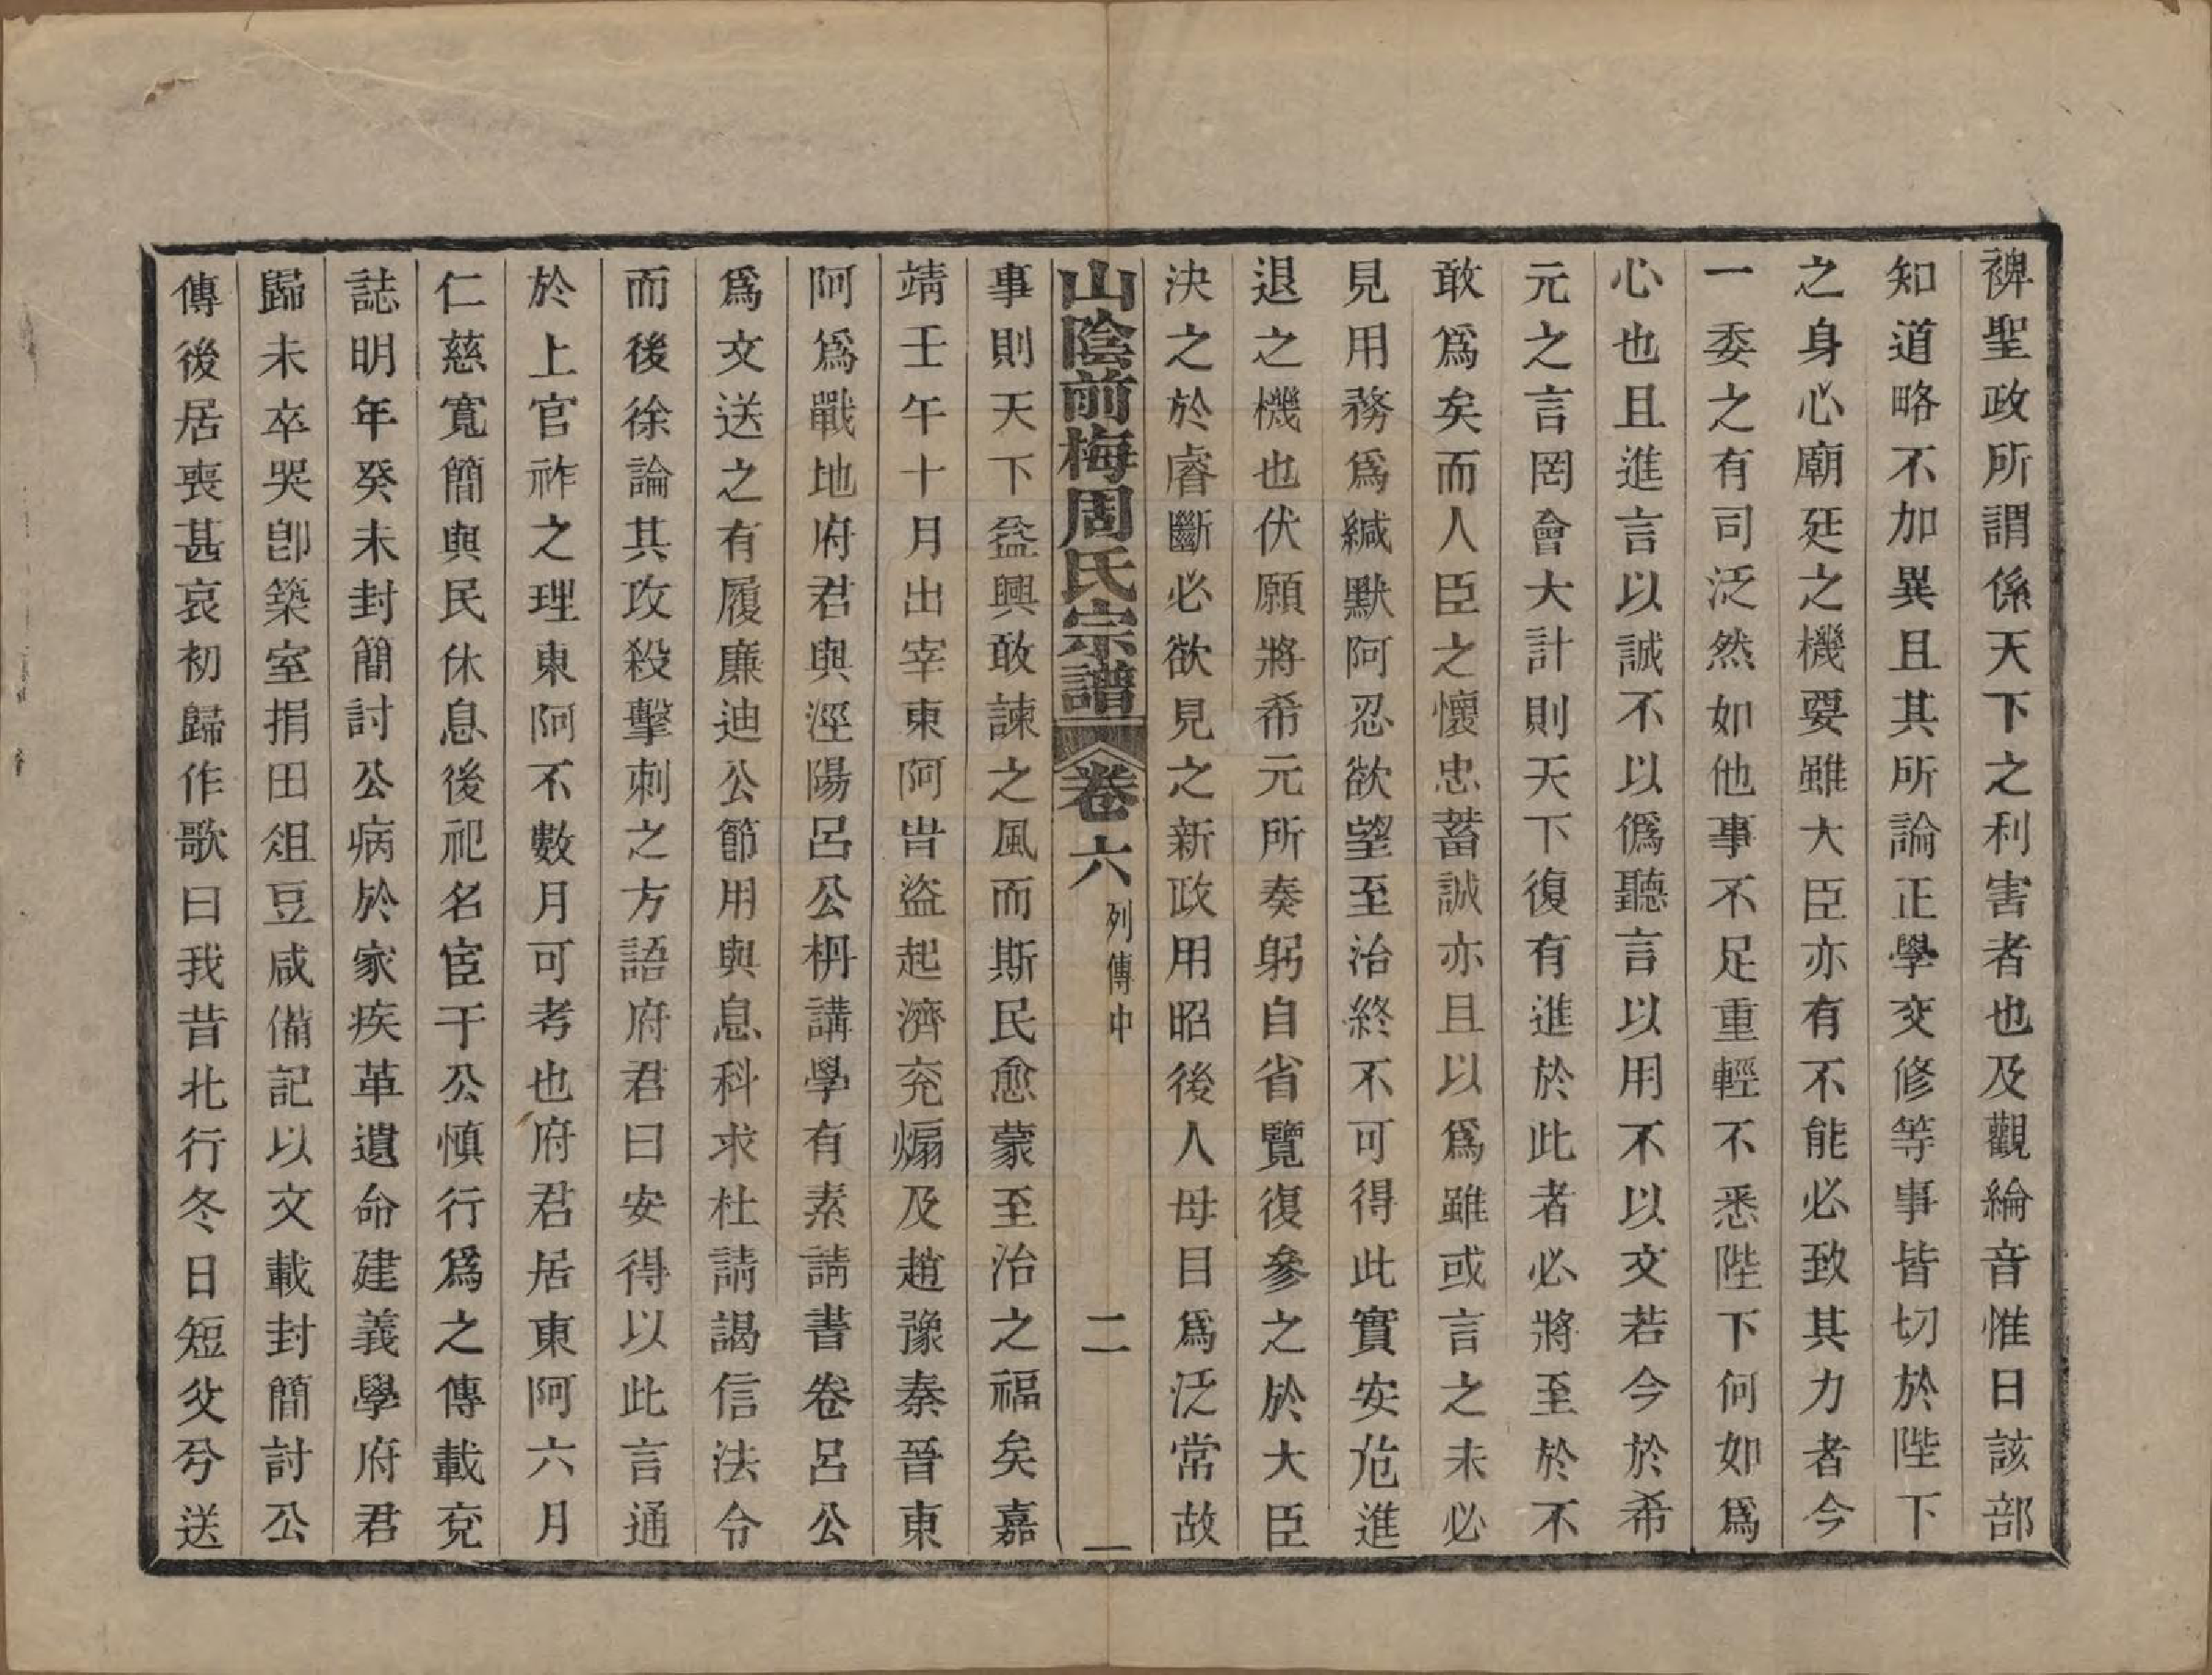 裨聖政所謂係天下之利害者也及觀綸音惟日該部
知道略不加異且其所論正學交修等事皆切於陛下
之身心廟廷之機要雖大臣亦有不能必致其力者今
一委之有司泛然如他事不足重輕不悉陛下何如爲
心也且進言以誠不以僞聽言以用不以文若今於希
元之言罔會大計則天下復有進於此者必將至於不
敢爲矣而人臣之懷忠蓄誠亦且以爲雖或言之未必
見用務爲緘默阿忍欲望至治終不可得此實安危進
退之機也伏願將希元所奏躬自省覽復參之於大臣
決之於睿斷必欲見之新政用昭後人毋目爲泛常故
山陰前梅周氏宗譜 卷六 列傳中 二
事則天下益興敢諫之風而斯民愈蒙至治之福矣嘉
靖壬午十月出宰東阿旹盜起濟兖煽及趙豫秦晉東
阿爲戰地府君與涇陽呂公枬講學有素請書卷呂公
爲文送之有履廉迪公節用與息科求杜請謁信法令
而後徐論其攻殺擊刺之方語府君曰安得以此言通
於上官祚之理東阿不數月可考也府君居東阿六月
仁慈寬簡與民休息後祀名宦于公慎行爲之傳載兗
誌明年癸未封簡討公病於家疾革遺命建義學府君
歸未卒哭卽築室捐田俎豆咸備記以文載封簡討公
傳後居喪甚哀初歸作歌曰我昔北行冬日短父兮送